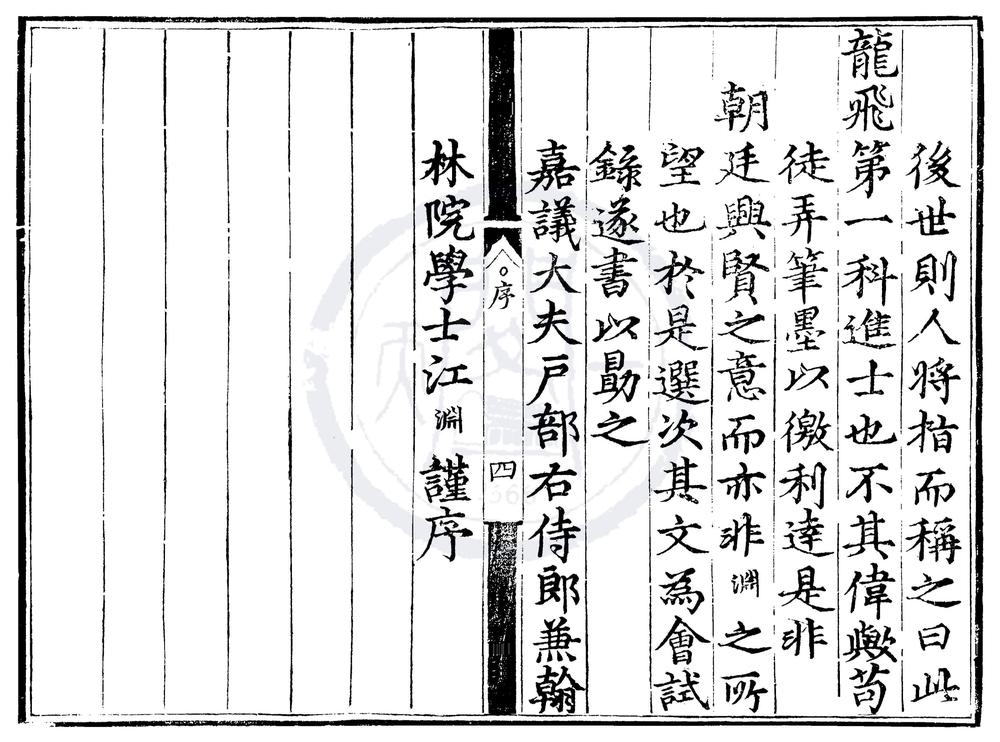 後世則人將指而稱之曰此
龍飛第一科進士也不其偉歟苟
徒弄筆墨以徼利達是非
朝廷興賢之意而亦非淵之所
望也於是選次其文為會試
錄遂書以勖之
嘉議大夫戶部右侍郎兼翰
○序
四
林院學士江淵謹序